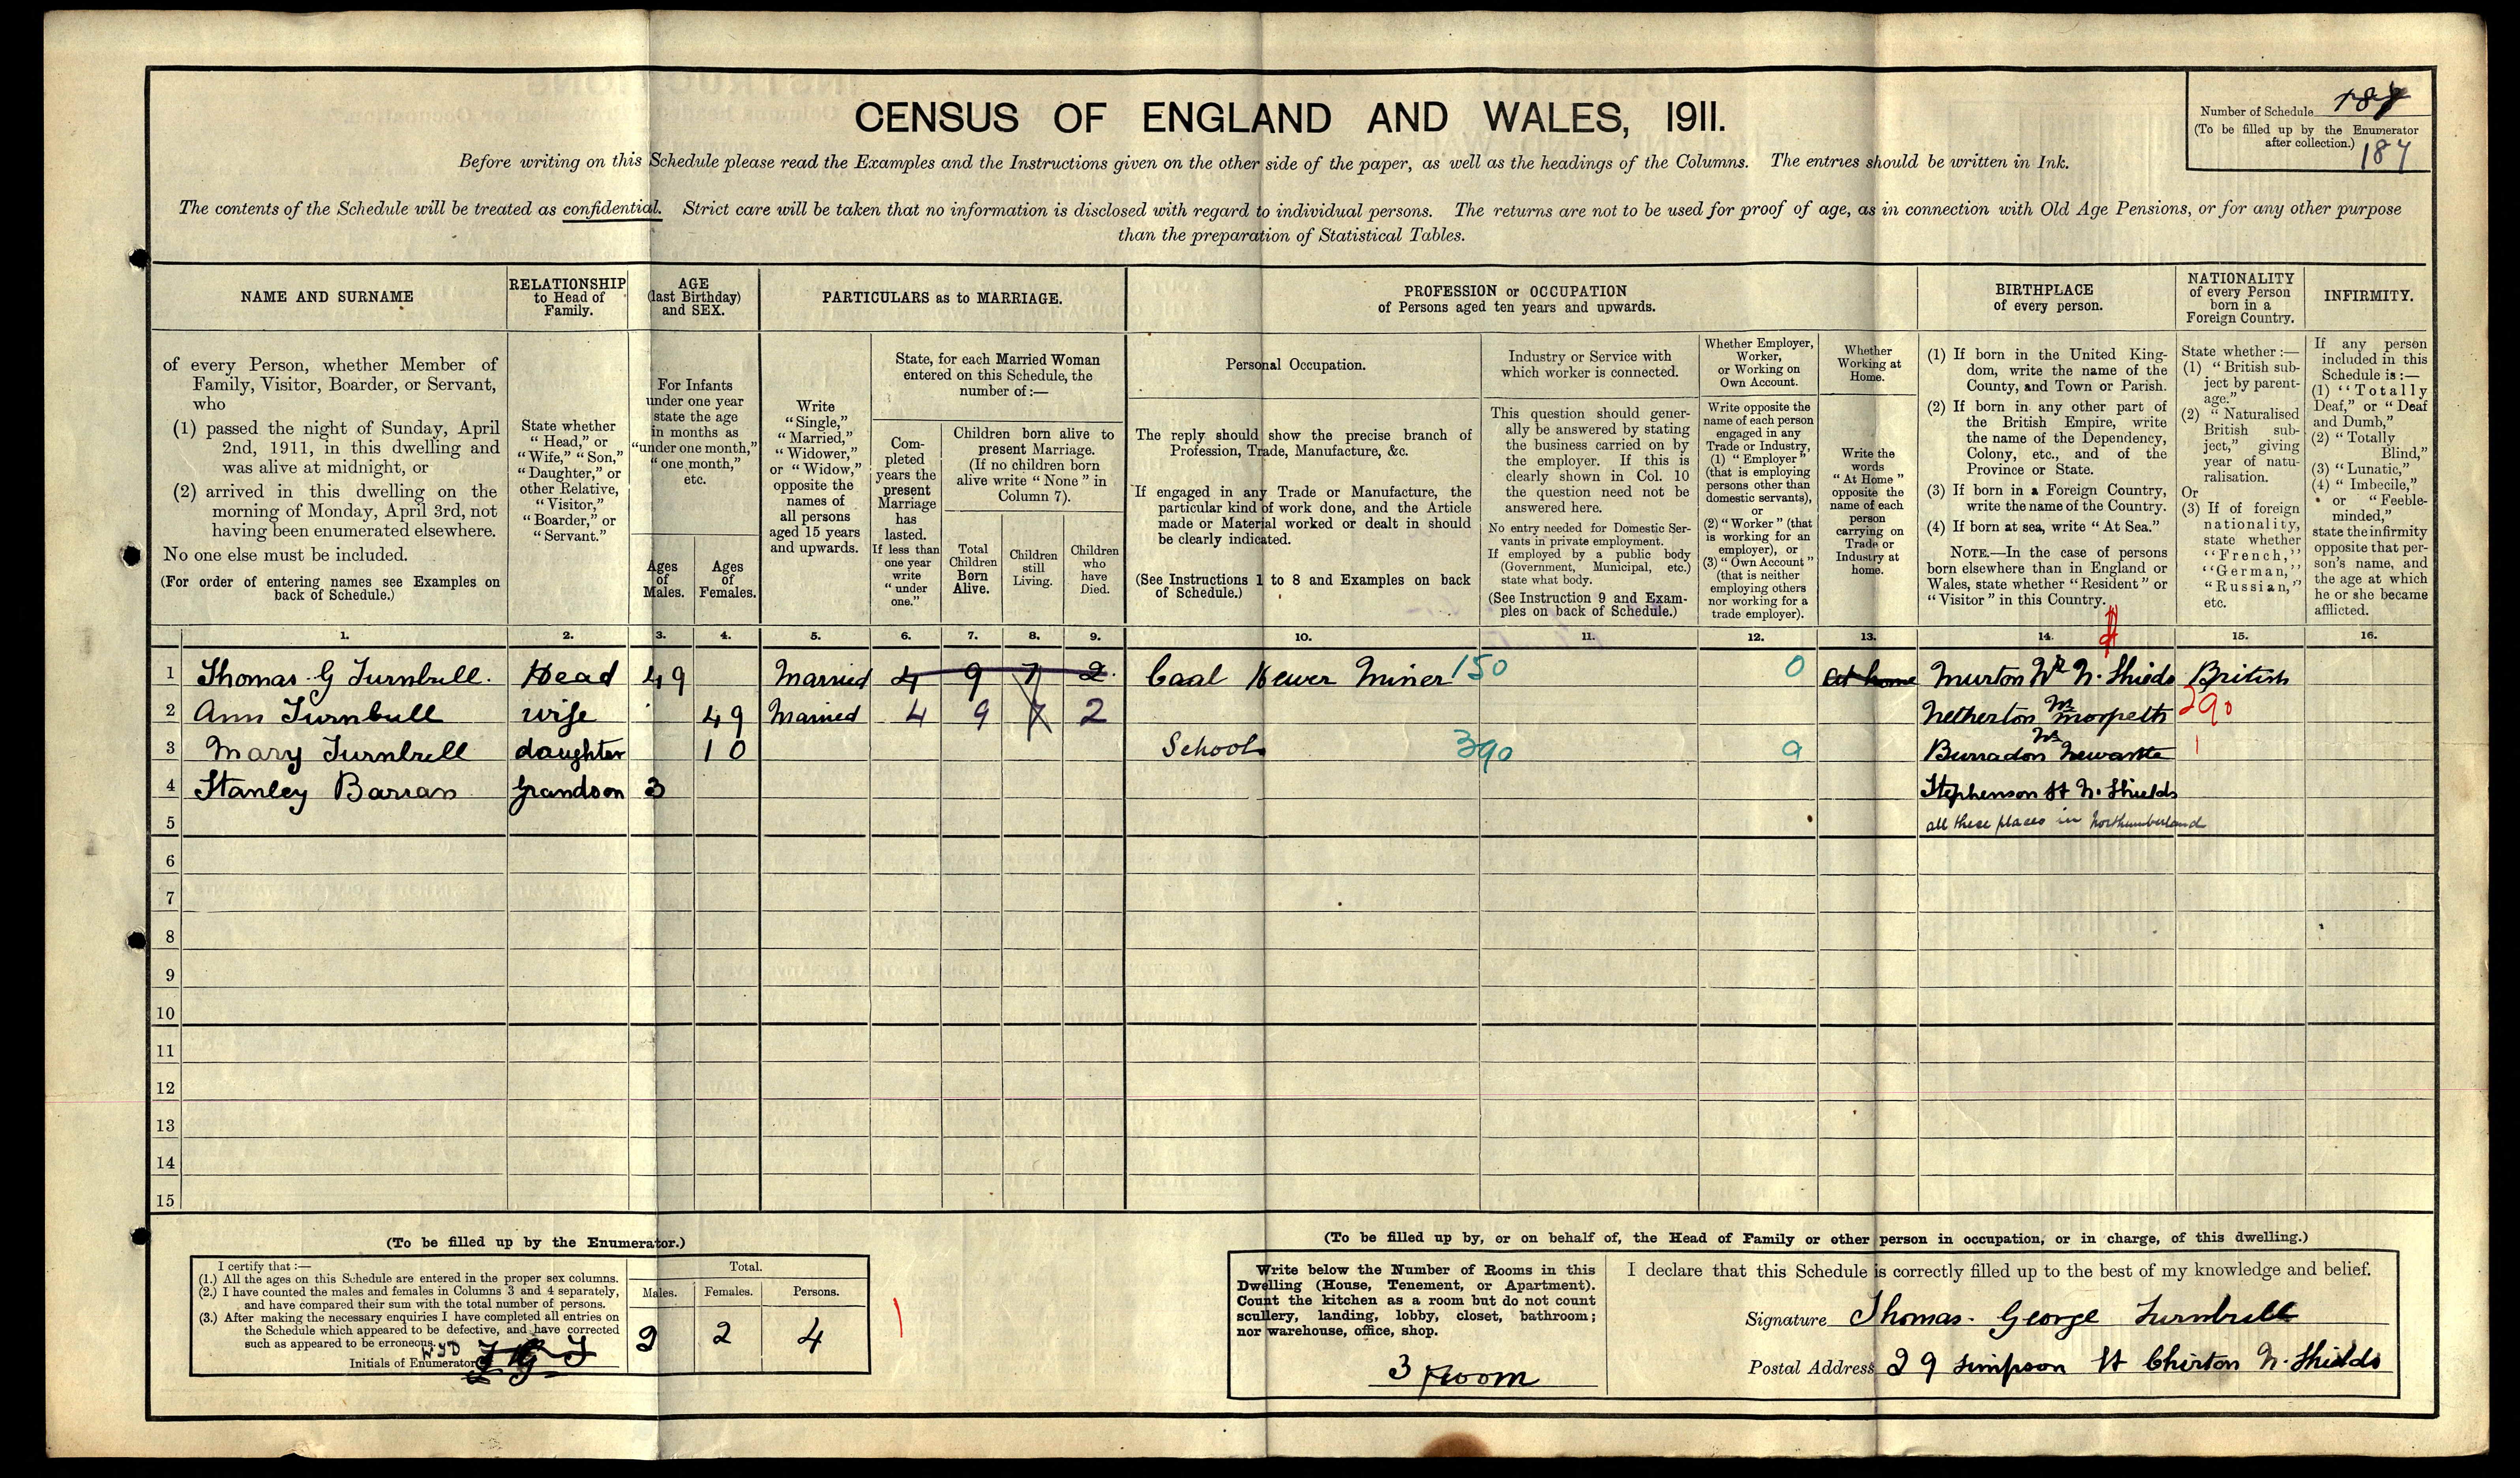 CENSUS OF ENGLAND AND WALES, 1911.
Number of Schedule 187
(To be filled up by the Enumerator
after collection.) 187
Before writing on this Schedule please read the Examples and the Instructions given on the other side of the paper, as well as the headings of the Columns. The entries should be written in Ink.
The contents of the Schedule will be treated as confidential. Strict care will be taken that no information is disclosed with regard to individual persons. The returns are not to be used for proof of age, as in connection with Old Age Pensions, or for any other purpose
than the preparation of Statistical Tables.
NAME AND SURNAME
of every Person, whether Member of
Family, Visitor, Boarder, or Servant,
who
(1) passed the night of Sunday, April
2nd, 1911, in this dwelling and
was alive at midnight, or
(2) arrived in this dwelling on the
morning of Monday, April 3rd, not
having been enumerated elsewhere.
No one else must be included.
(For order of entering names see Examples on
back of Schedule.)
RELATIONSHIP
to Head of
Family.
State whether
"Head," or
"Wife," "Son,"
"Daughter," or
other Relative,
"Visitor,"
"Boarder," or
"Servant."
AGE
(last Birthday)
and SEX.
For Infants
under one year
state the age
in months as
"under one month,"
"one month,"
etc.
Ages
of
Males.
Ages
of
Females.
PARTICULARS as to MARRIAGE.
Write
"Single,"
"Married,"
"Widower,"
or "Widow,"
opposite the
names of
all persons
aged 15 years
and upwards.
State, for each Married Woman
entered on this Schedule, the
number of :—
Com-
pleted
years the
present
Marriage
has
lasted.
If less than
one year
write
"under
one."
Children born alive to
present Marriage.
(If no children born
alive write "None" in
Column 7).
Total
Children
Born
Alive.
Children
still
Living.
Children
who
have
Died.
PROFESSION or OCCUPATION
of Persons aged ten years and upwards.
Personal Occupation.
The reply should show the precise branch of
Profession, Trade, Manufacture, &c.
If engaged in any Trade or Manufacture, the
particular kind of work done, and the Article
made or Material worked or dealt in should
be clearly indicated.
(See Instructions 1 to 8 and Examples on back
of Schedule.)
Industry or Service with
which worker is connected.
This question should gener-
ally be answered by stating
the business carried on by
the employer. If this is
clearly shown in Col. 10
the question need not be
answered here.
No entry needed for Domestic Ser-
vants in private employment.
If employed by a public body
(Government, Municipal, etc.)
state what body.
(See Instruction 9 and Exam-
ples on back of Schedule.)
Whether Employer,
Worker,
or Working on
Own Account.
Write opposite the
name of each person
engaged in any
Trade or Industry,
(1) "Employer"
(that is employing
persons other than
domestic servants),
or
(2) "Worker" (that
is working for an
employer), or
(3) "Own Account"
(that is neither
employing others
nor working for a
trade employer).
Whether
Working at
Home.
Write the
words
"At Home"
opposite the
name of each
person
carrying on
Trade or
Industry at
home.
BIRTHPLACE
of every person.
(1) If born in the United King-
dom, write the name of the
County, and Town or Parish.
(2) If born in any other part of
the British Empire, write
the name of the Dependency,
Colony, etc., and of the
Province or State.
(3) If born in a Foreign Country,
write the name of the Country.
(4) If born at sea, write "At Sea."
NOTE.—In the case of persons
born elsewhere than in England or
Wales, state whether "Resident" or
"Visitor" in this Country.
NATIONALITY
of every Person
born in a
Foreign Country.
State whether :—
(1) "British sub-
ject by parent-
age."
(2) "Naturalised
British sub-
ject," giving
year of natu-
ralisation.
Or
(3) If of foreign
nationality,
state whether
"French,"
"German,"
"Russian,"
etc.
INFIRMITY.
If any person
included in this
Schedule is :—
(1) "Totally
Deaf," or "Deaf
and Dumb,"
(2) "Totally
Blind,"
(3) "Lunatic,"
(4) "Imbecile,"
or "Feeble-
minded,"
state the infirmity
opposite that per-
son's name, and
the age at which
he or she became
afflicted.
1. 2. 3. 4. 5. 6. 7. 8. 9. 10. 11. 12. 13. 14. 15. 16.
1 Thomas G Turnbull. Head 49 Married 4 9 7 2 Coal Hewer Miner 150 0 at home Murton Nr N. Shields British
2 Ann Turnbull wife 49 Married 4 9 7 2 Netherton Nr Morpeth 290
3 Mary Turnbull daughter 10 School 390 9 Burradon Nr Newcastle 1
4 Stanley Barran grandson 3 Stephenson St N. Shields
5 all these places in Northumberland
6
7
8
9
10
11
12
13
14
15
(To be filled up by the Enumerator.)
I certify that :—
(1.) All the ages on this Schedule are entered in the proper sex columns.
(2.) I have counted the males and females in Columns 3 and 4 separately,
and have compared their sum with the total number of persons.
(3.) After making the necessary enquiries I have completed all entries on
the Schedule which appeared to be defective, and have corrected
such as appeared to be erroneous.
Initials of Enumerator
Total.
Males. Females. Persons.
2 2 4
(To be filled up by, or on behalf of, the Head of Family or other person in occupation, or in charge, of this dwelling.)
Write below the Number of Rooms in this
Dwelling (House, Tenement, or Apartment).
Count the kitchen as a room but do not count
scullery, landing, lobby, closet, bathroom;
nor warehouse, office, shop.
3 room
I declare that this Schedule is correctly filled up to the best of my knowledge and belief.
Signature Thomas. George Turnbull
Postal Address 29 simpson St Chirton N. Shields